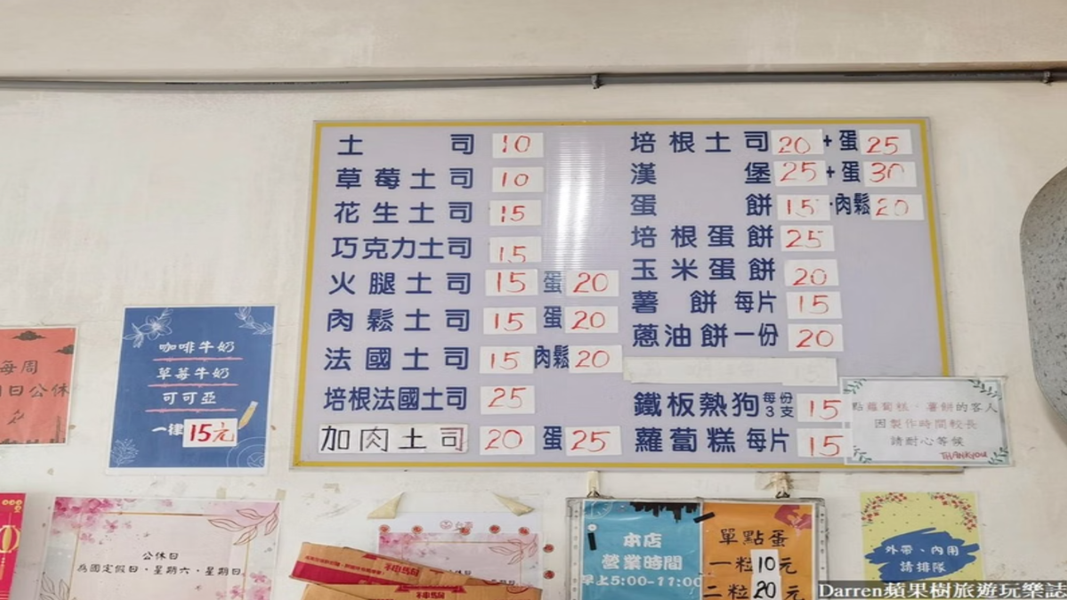 土司 10
草莓土司 10
花生土司 15
巧克力土司 15
火腿土司 15 蛋 20
肉鬆土司 15 蛋 20
法國土司 15 肉鬆 20
培根法國土司 25
加肉土司 20 蛋 25
培根土司 20 + 蛋 25
漢堡 25 + 蛋 30
蛋餅 15 肉鬆 20
培根蛋餅 25
玉米蛋餅 20
薯餅 每片 15
蔥油餅一份 20
鐵板熱狗 每份3支 15
蘿蔔糕 每片 15
點蘿蔔糕、薯餅的客人
因製作時間較長
請耐心等候
THANKYOU
每周
日公休
咖啡牛奶
草莓牛奶
可可亞
一律15元
公休日
為國定假日、星期六、星期日
本店
營業時間
早上5:00-11:00
單點蛋
一粒10元
二粒20元
外帶、內用
請排隊
Darren蘋果樹旅遊玩樂誌